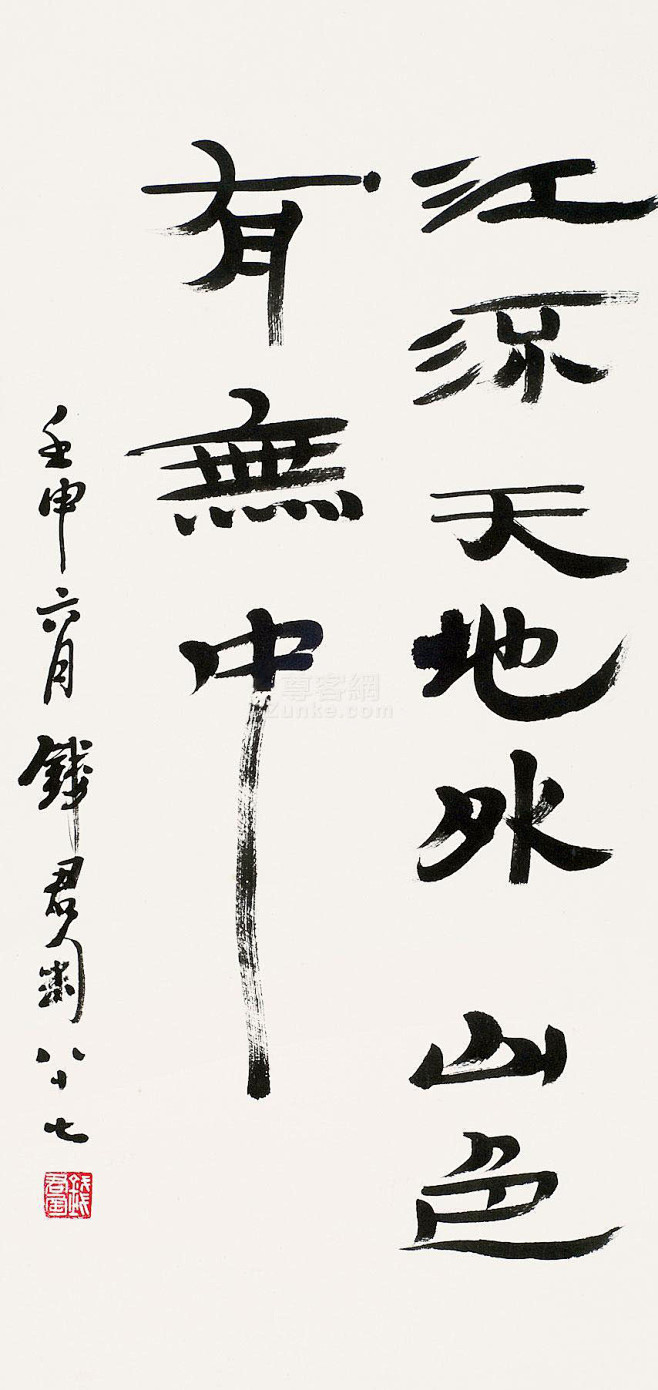 江流天地外山色
有無中
壬申六月錢君匋八十七
錢君匋
尊客網
Zunke.com